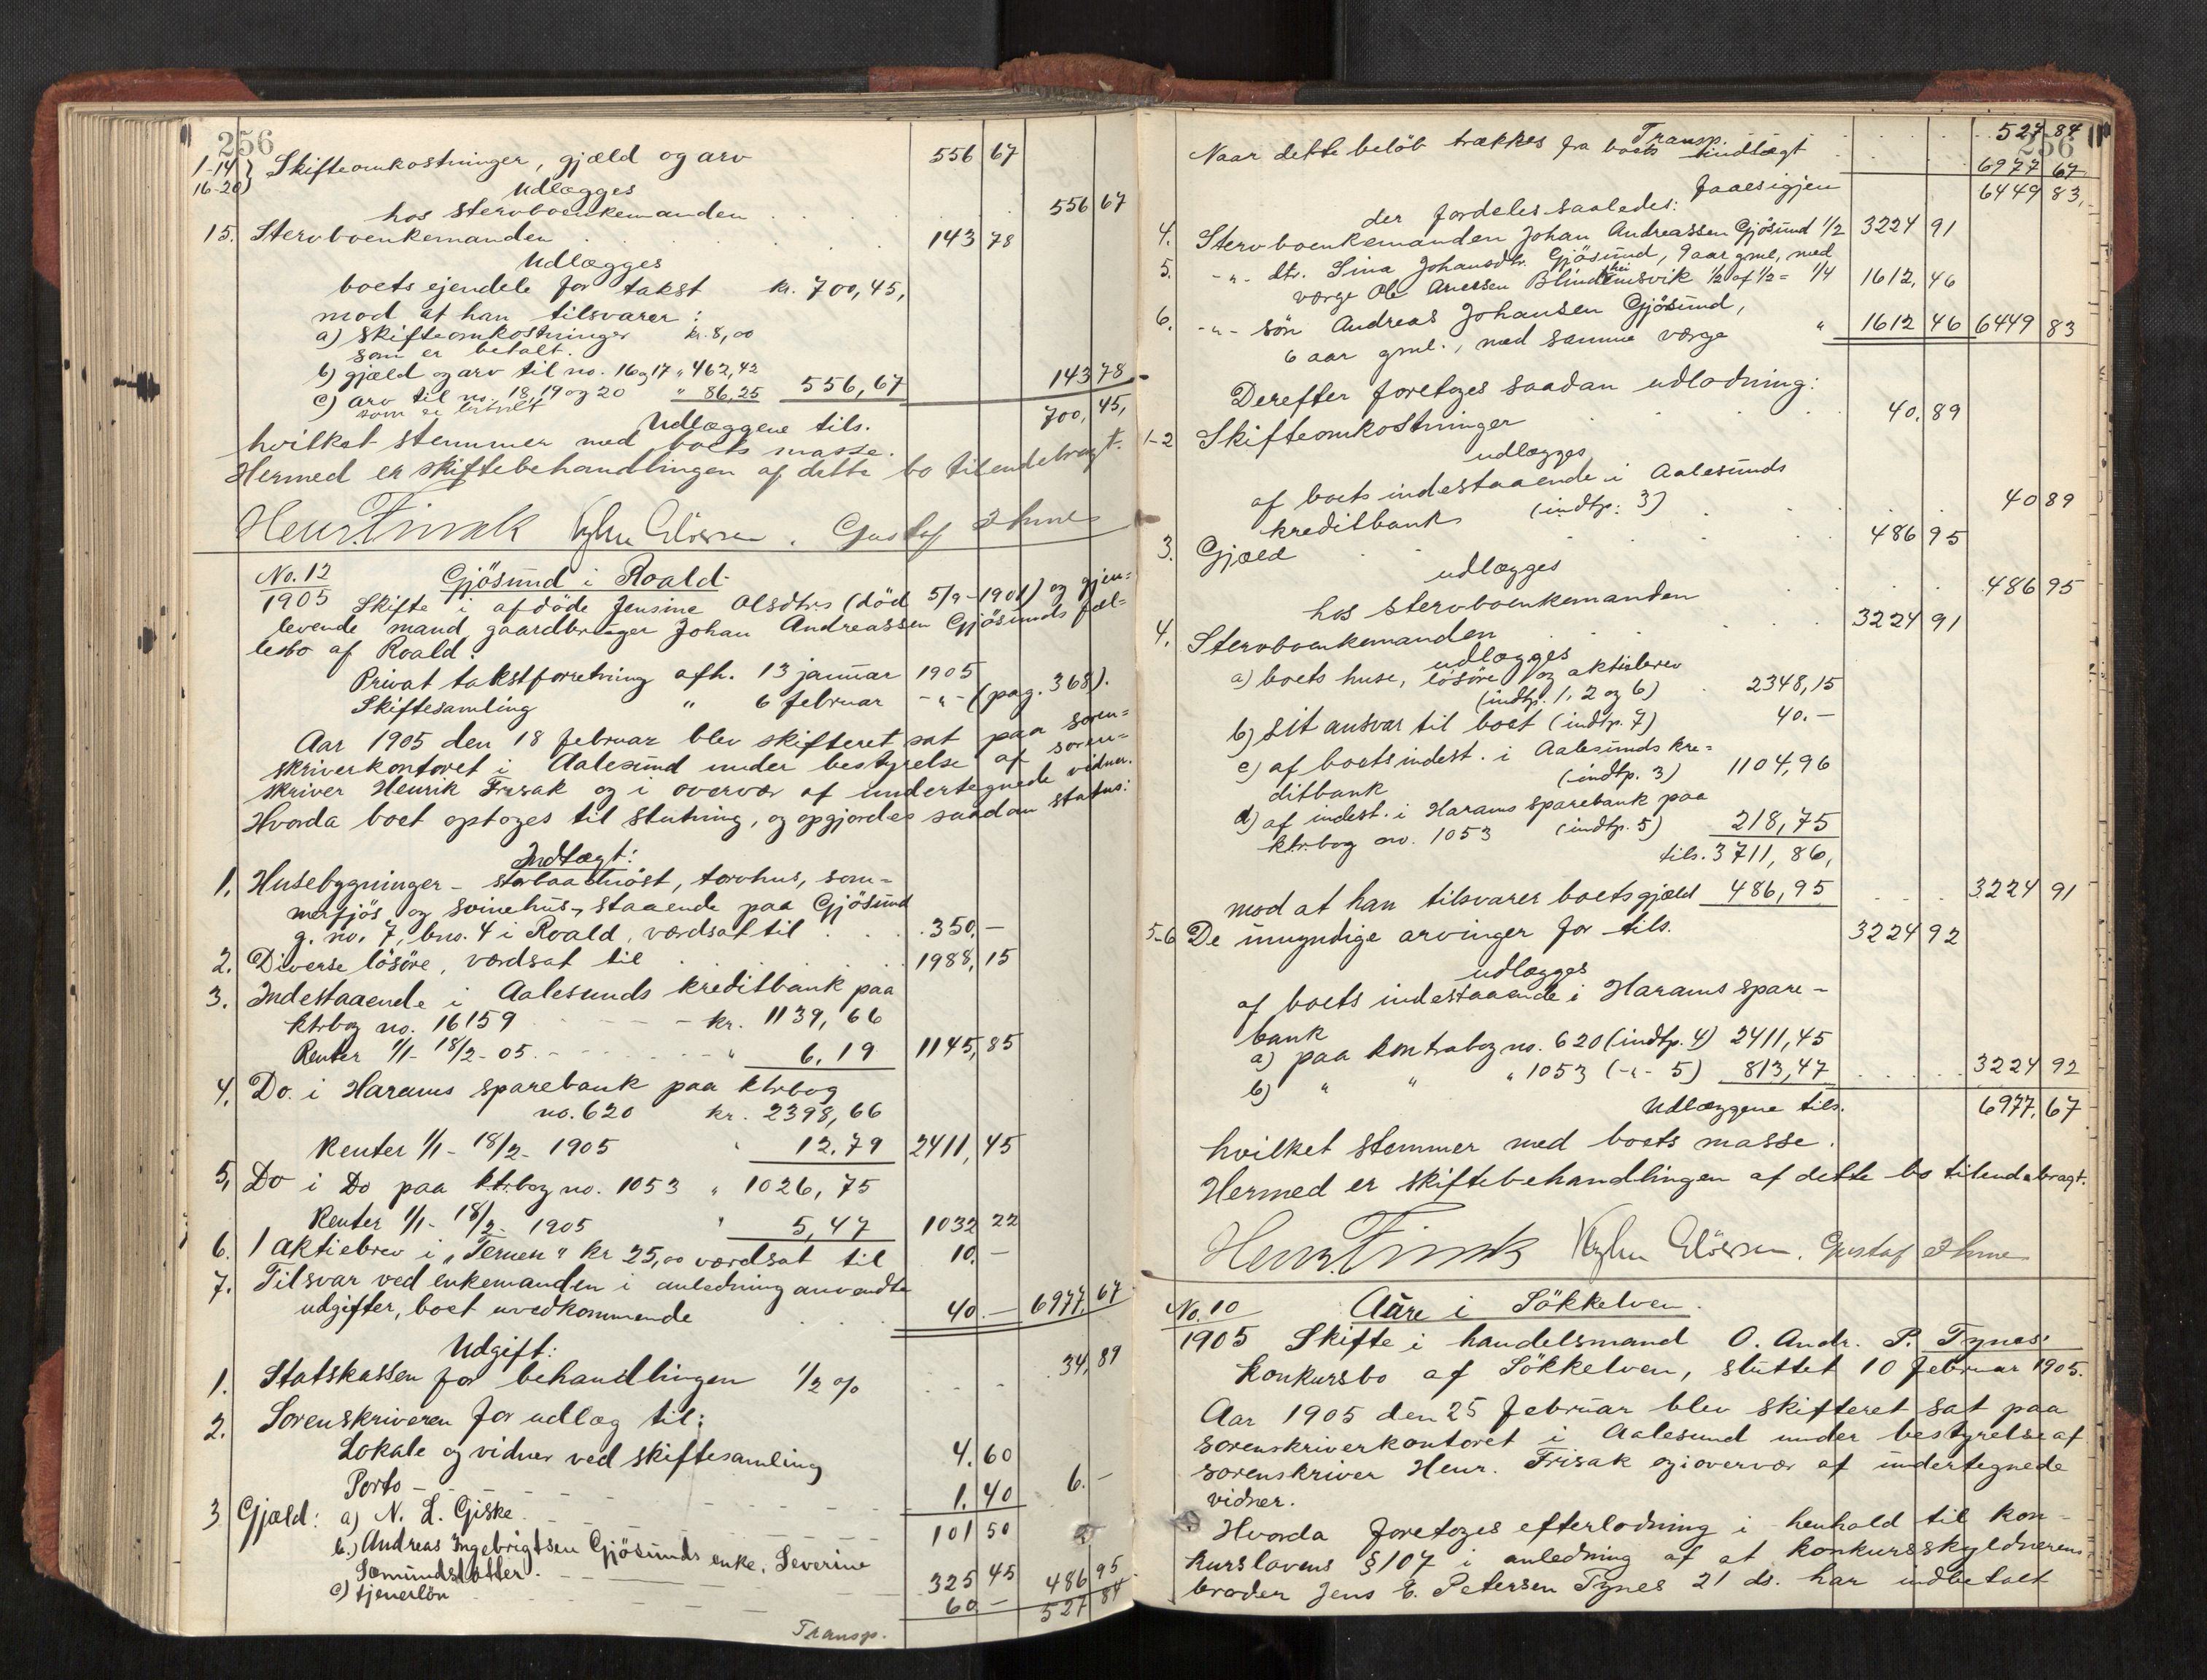 256
1-14 } Skifteomkostninger, gjæld og arv 556 67
16-20 }
Udlægges
hos stervboenkemanden . . . . . 556 67
15. Stervboenkemanden . . . . . 143 78
Udlægges
boets ejendele for takst kr. 700,45,
mod at han tilsvarer :
a) skifteomkostninger kr. 8,00
som er betalt.
b) gjæld og arv til no. 16 og 17 " 462,42
c) arv til no. 18, 19 og 20 " 86,25 556,67 143 78
som er betalt
Udlæggene tils. 700, 45,
hvilket stemmer med boets masse.
Hermed er skiftebehandlingen af dette bo tilendebragt.
Henr. Frisak Gustaf Ihme
No. 12 Gjösund i Roald.
1905 Skifte i afdöde Jensine Olsdtrs (död 5/9-1901) og gjen=
levende mand gaardbruger Johan Andreassen Gjösunds fæl-
lesbo af Roald:
Privat takstforretning afh. 13 januar 1905
Skiftesamling " 6 februar -"- (pag. 368).
Aar 1905 den 18 februar blev skifteret sat paa soren=
skriverkontoret i Aalesund under bestyrelse af soren=
skriver Henrik Frisak og i overvær af undertegnede vidner.
Hvorda boet optoges til slutning, og opgjordes saadan status:
Indtægt:
1. Husebygninger - storbaadnöst, torvhus, som-
merfjös og svinehus, staaende paa Gjösund
g. no. 7, bno. 4 i Roald, værdsat til . . . 350, —
2. Diverse lösöre, værdsat til . . . . . 1988, 15
3. Indestaaende i Aalesunds kreditbank paa
ktrbog no. 16159 - - - - kr. 1139, 66
Renter 1/1 - 18/2 - 05. - - - - - - " 6. 19 1145, 85
4. Do. i Harams sparebank paa ktrbog
no. 620 kr. 2398, 66
Renter 1/1 - 18/2 - 1905 " 12. 79 2411, 45
5, Do i Do paa ktrbog no. 1053 " 1026, 75
Renter 1/1 - 18/2 - 1905 " 5, 47 1032 22
6. 1 aktiebrev i „Ternen" kr 25,00 værdsat til 10. —
7. Tilsvar ved enkemanden i anledning anvendte
udgifter, boet uvedkommende . . . 40 — 6977, 67
Udgift:
1. Statskassen for behandlingen 1/2 % . - - 34, 89
2. Sorenskriveren for udlæg til:
Lokale og vidner ved skiftesamling 4. 60
Porto - - - - - - - - - 1. 40 6. —
3 Gjæld: a) N. L. Giske - - - - - - - 101 50
b.) Andreas Ingebrigtsen Gjösunds enke, Severine
Sæmundsdatter. - - - - - - 325 45 486 95
c) tjenerlön - - - - - 60 — 527 84
Transp.
256
Transp. . . . . 527 84
Naar dette belöb trækkes fra boets indtægt 6977 67
faaes igjen 6449 83,
der fordeles saaledes:
4. Stervboenkemanden Johan Andreassen Gjösund 1/2 3224 91
5. -"- dtr. Sina Johansdtr. Gjösund, 9 aar gml, med
værge Ole Anessen Blindheimsvik 1/2 af 1/2 = 1/4 1612, 46
6. -"- sön Andreas Johansen Gjösund,
6 aar gml., med samme værge " 1612 46 6449 83
Derefter foretoges saadan udlodning:
1-2 Skifteomkostninger . . . . . 40. 89
udlægges
af boets indestaaende i Aalesunds
kreditbank (indtp. 3) . . . . . 40 89
3. Gjæld . . . . . 486 95
udlægges
hos stervboenkemanden . . . . . 486 95
4. Stervboenkemanden . . . . . 3224 91
udlægges
a) boets huse, lösöre og aktiebrev
(indtp. 1, 2 og 6) . 2348, 15
b) sit ansvar til boet (indtp. 7) 40. —
c) af boets indest. i Aalesunds kre=
ditbank (indtp. 3) 1104, 96
d) af indest. i Harams sparebank paa
ktrbog no. 1053 (indtp. 5) 218, 75
tils. 3711, 86,
mod at han tilsvarer boets gjæld 486, 95 . . . 3224 91
5-6 De umyndige arvinger for tils. 3224 92
udlægges
af boets indestaaende i Harams spare-
bank
a) paa kontrabog no. 620 (indtp. 4) 2411, 45
b) " " " 1053 (-"- 5) 813, 47 . . . . 3224 92
Udlæggene tils. 6977. 67
hvilket stemmer med boets masse.
Hermed er skiftebehandlingen af dette bo tilendebragt.
Henr. Frisak Gustaf Ihme
No. 10 Aure i Sökkelven.
1905 Skifte i handelsmand O. Andr. P. Tynes'
konkursbo af Sökkelven, sluttet 10 februar 1905.
Aar 1905 den 25 februar blev skifteret sat paa
sorenskriverkontoret i Aalesund under bestyrelse af
sorenskriver Henr. Frisak og i overvær af undertegnede
vidner.
Hvorda foretoges efterlodning i henhold til kon-
kurslovens § 107 i anledning af at konkursskyldnerens
broder Jens E. Petersen Tynes 21 ds. har indbetalt